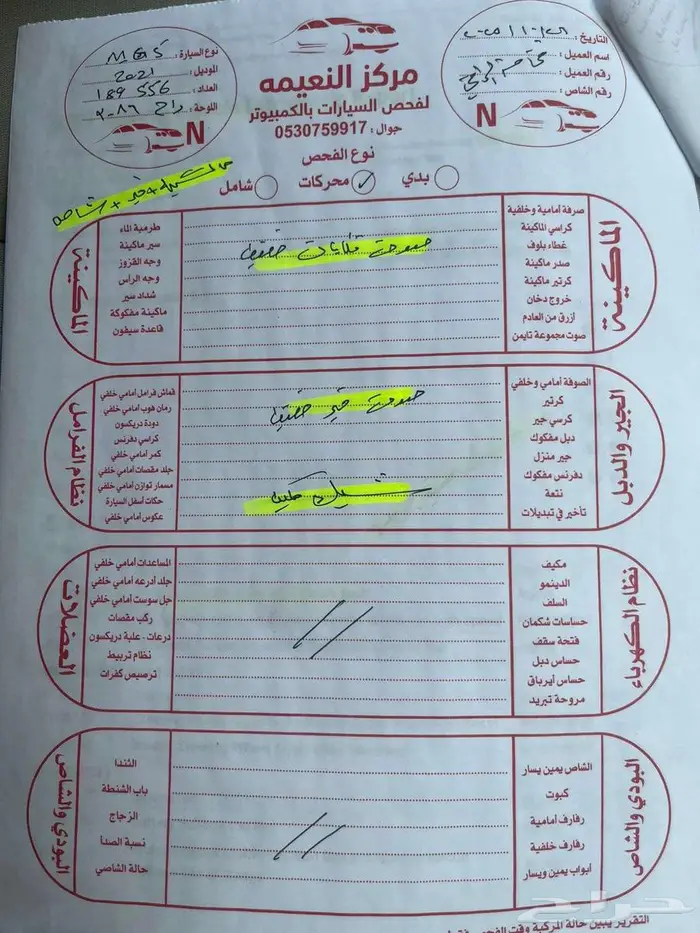 التاريخ :
اسم العميل :
رقم العميل :
رقم الشاص :
N
مركز النعيمه
لفحص السيارات بالكمبيوتر
جوال : 0530759917
نوع السيارة : MG5
الموديل : 2021
العداد : 189556
اللوحة :
N
نوع الفحص
بدي
محركات ✓
شامل
الماكينة
صرفة أمامية وخلفية
كراسي الماكينة
غطاء بلوف
صدر ماكينة
كرتير ماكينة
خروج دخان
أزرق من العادم
صوت مجموعة تايمن
طرمبة الماء
سير ماكينة
وجه القزوز
وجه الرأس
شداد سير
ماكينة مفكوكة
قاعدة سيفون
الماكينة
الجير والدبل
الصوفة أمامي وخلفي
كرتير
كرسي جير
دبل مفكوك
جير منزل
دفرنس مفكوك
نتعة
تأخير في تبديلات
قماش فرامل أمامي خلفي
رمان هوب أمامي خلفي
دودة دريكسون
كراسي دفرنس
كمر أمامي خلفي
جلد مقصات أمامي خلفي
مسمار توازن أمامي خلفي
حكات أسفل السيارة
عكوس أمامي خلفي
نظام الفرامل
نظام الكهرباء
مكيف
الدينمو
السلف
حساسات شكمان
فتحة سقف
حساس دبل
حساس أيرباق
مروحة تبريد
المساعدات أمامي خلفي
جلد أذرعه أمامي خلفي
جل سوست أمامي خلفي
ركب مقصات
درعات - علبة دريكسون
نظام تربيط
ترصيص كفرات
العضلات
البودي والشاص
الشاص يمين يسار
كبوت
رفارف أمامية
رفارف خلفية
أبواب يمين ويسار
الثندا
باب الشنطة
الزجاج
نسبة الصدأ
حالة الشاصي
البودي والشاص
التقرير يبين حالة المركبة وقت الفحص
حراج